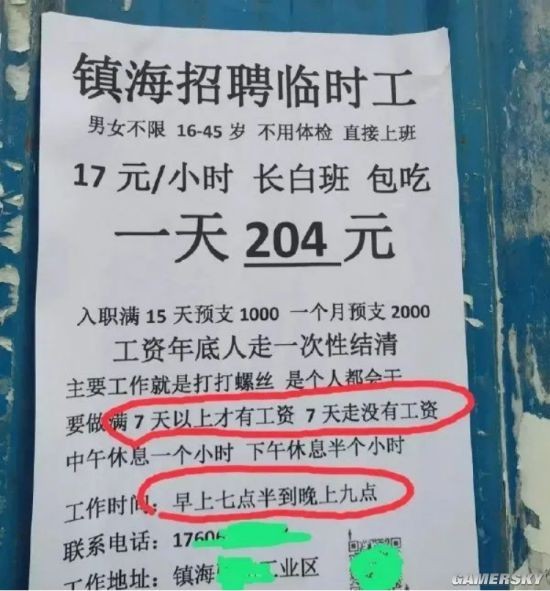 镇海招聘临时工
男女不限 16-45 岁 不用体检 直接上班
17 元/小时 长白班 包吃
一天 204 元
入职满 15 天预支 1000 一个月预支 2000
工资年底人走一次性结清
主要工作就是打打螺丝 是个人都会干
要做满 7 天以上才有工资 7 天走没有工资
中午休息一个小时 下午休息半个小时
工作时间：早上七点半到晚上九点
联系电话：17606
工作地址：镇海 工业区
GAMERSKY